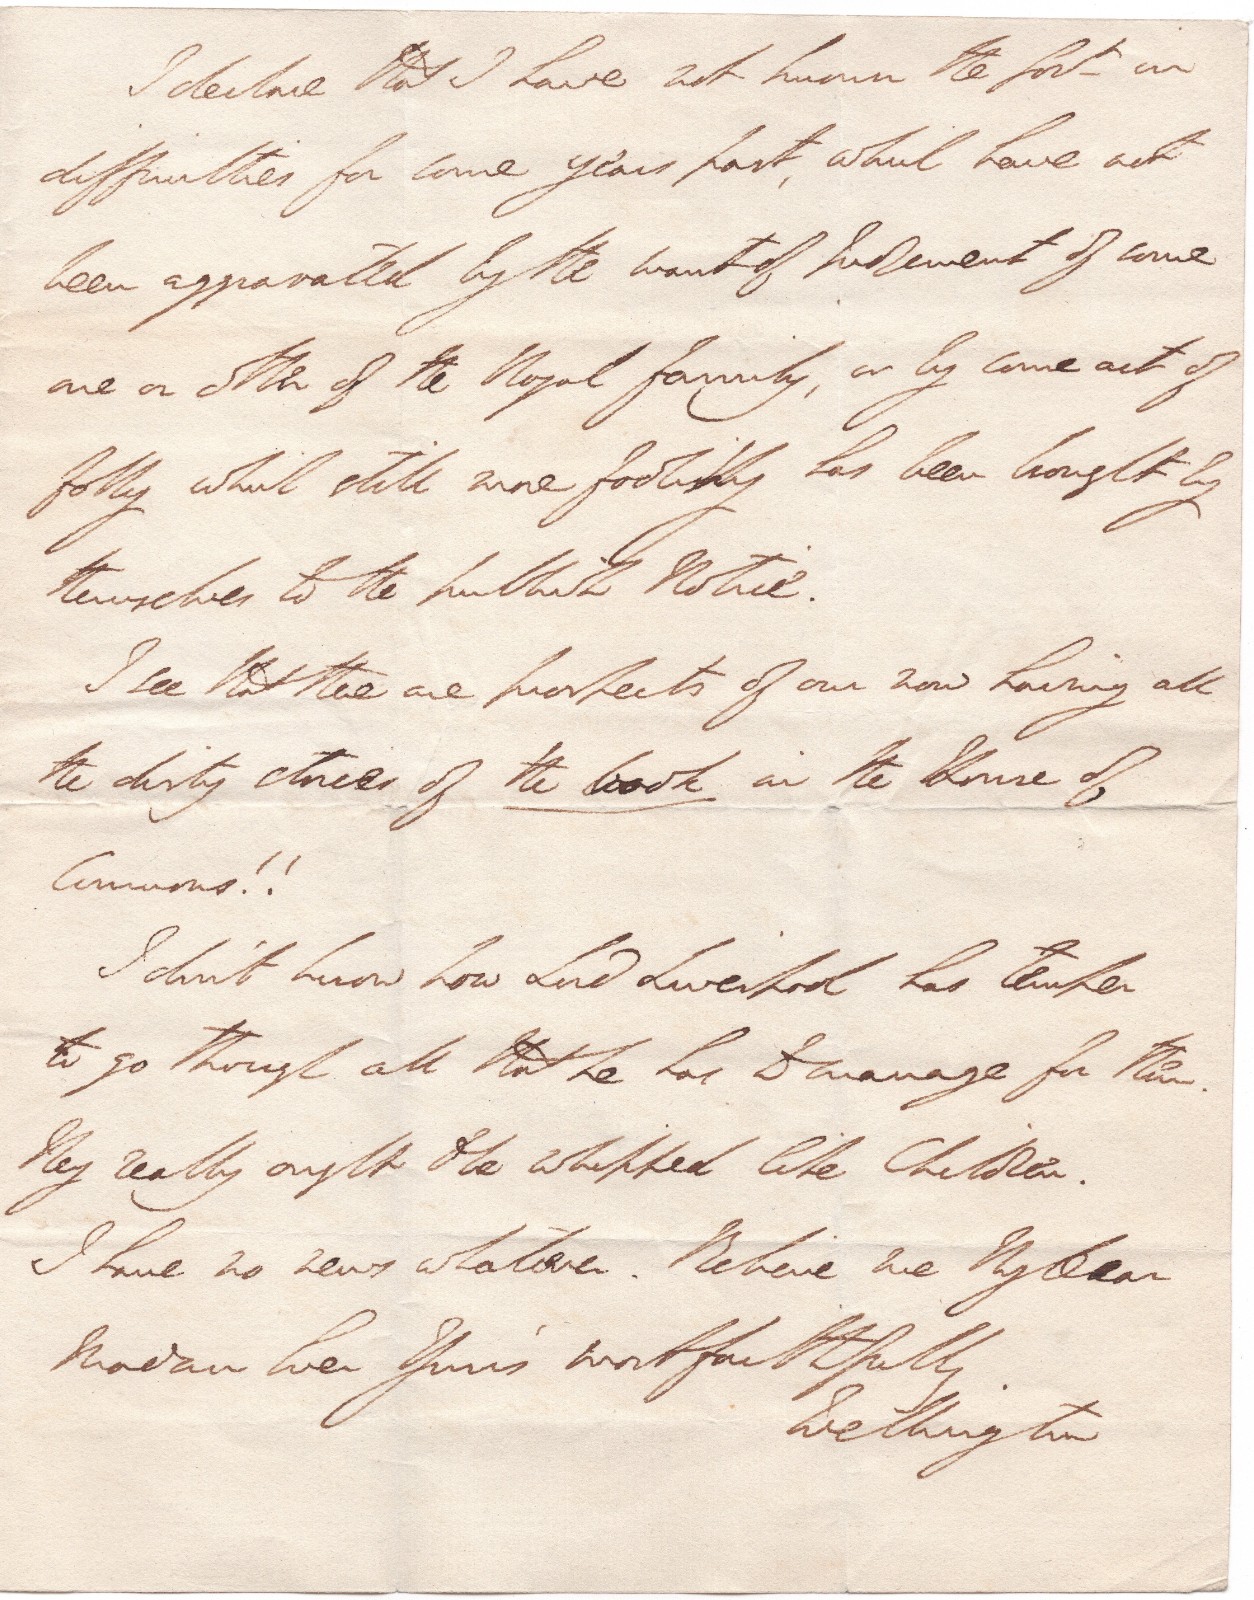 I declare that I have not known the Govt in
difficulties for some years past, which have not
been aggravated by the want of Judgement of some
one or other of the Royal family, or by some act of
folly which still more foolishly has been brought by
themselves to the publick Notice.
I see that there are prospects of our now having all
the dirty stories of the book in the House of
Commons!!
I don't know how Lord Liverpool has temper
to go through all that he has to manage for them.
They really ought to be whipped like Children.
I have no news whatever. Believe me My Dear
Madam Ever Yours most faithfully
Wellington